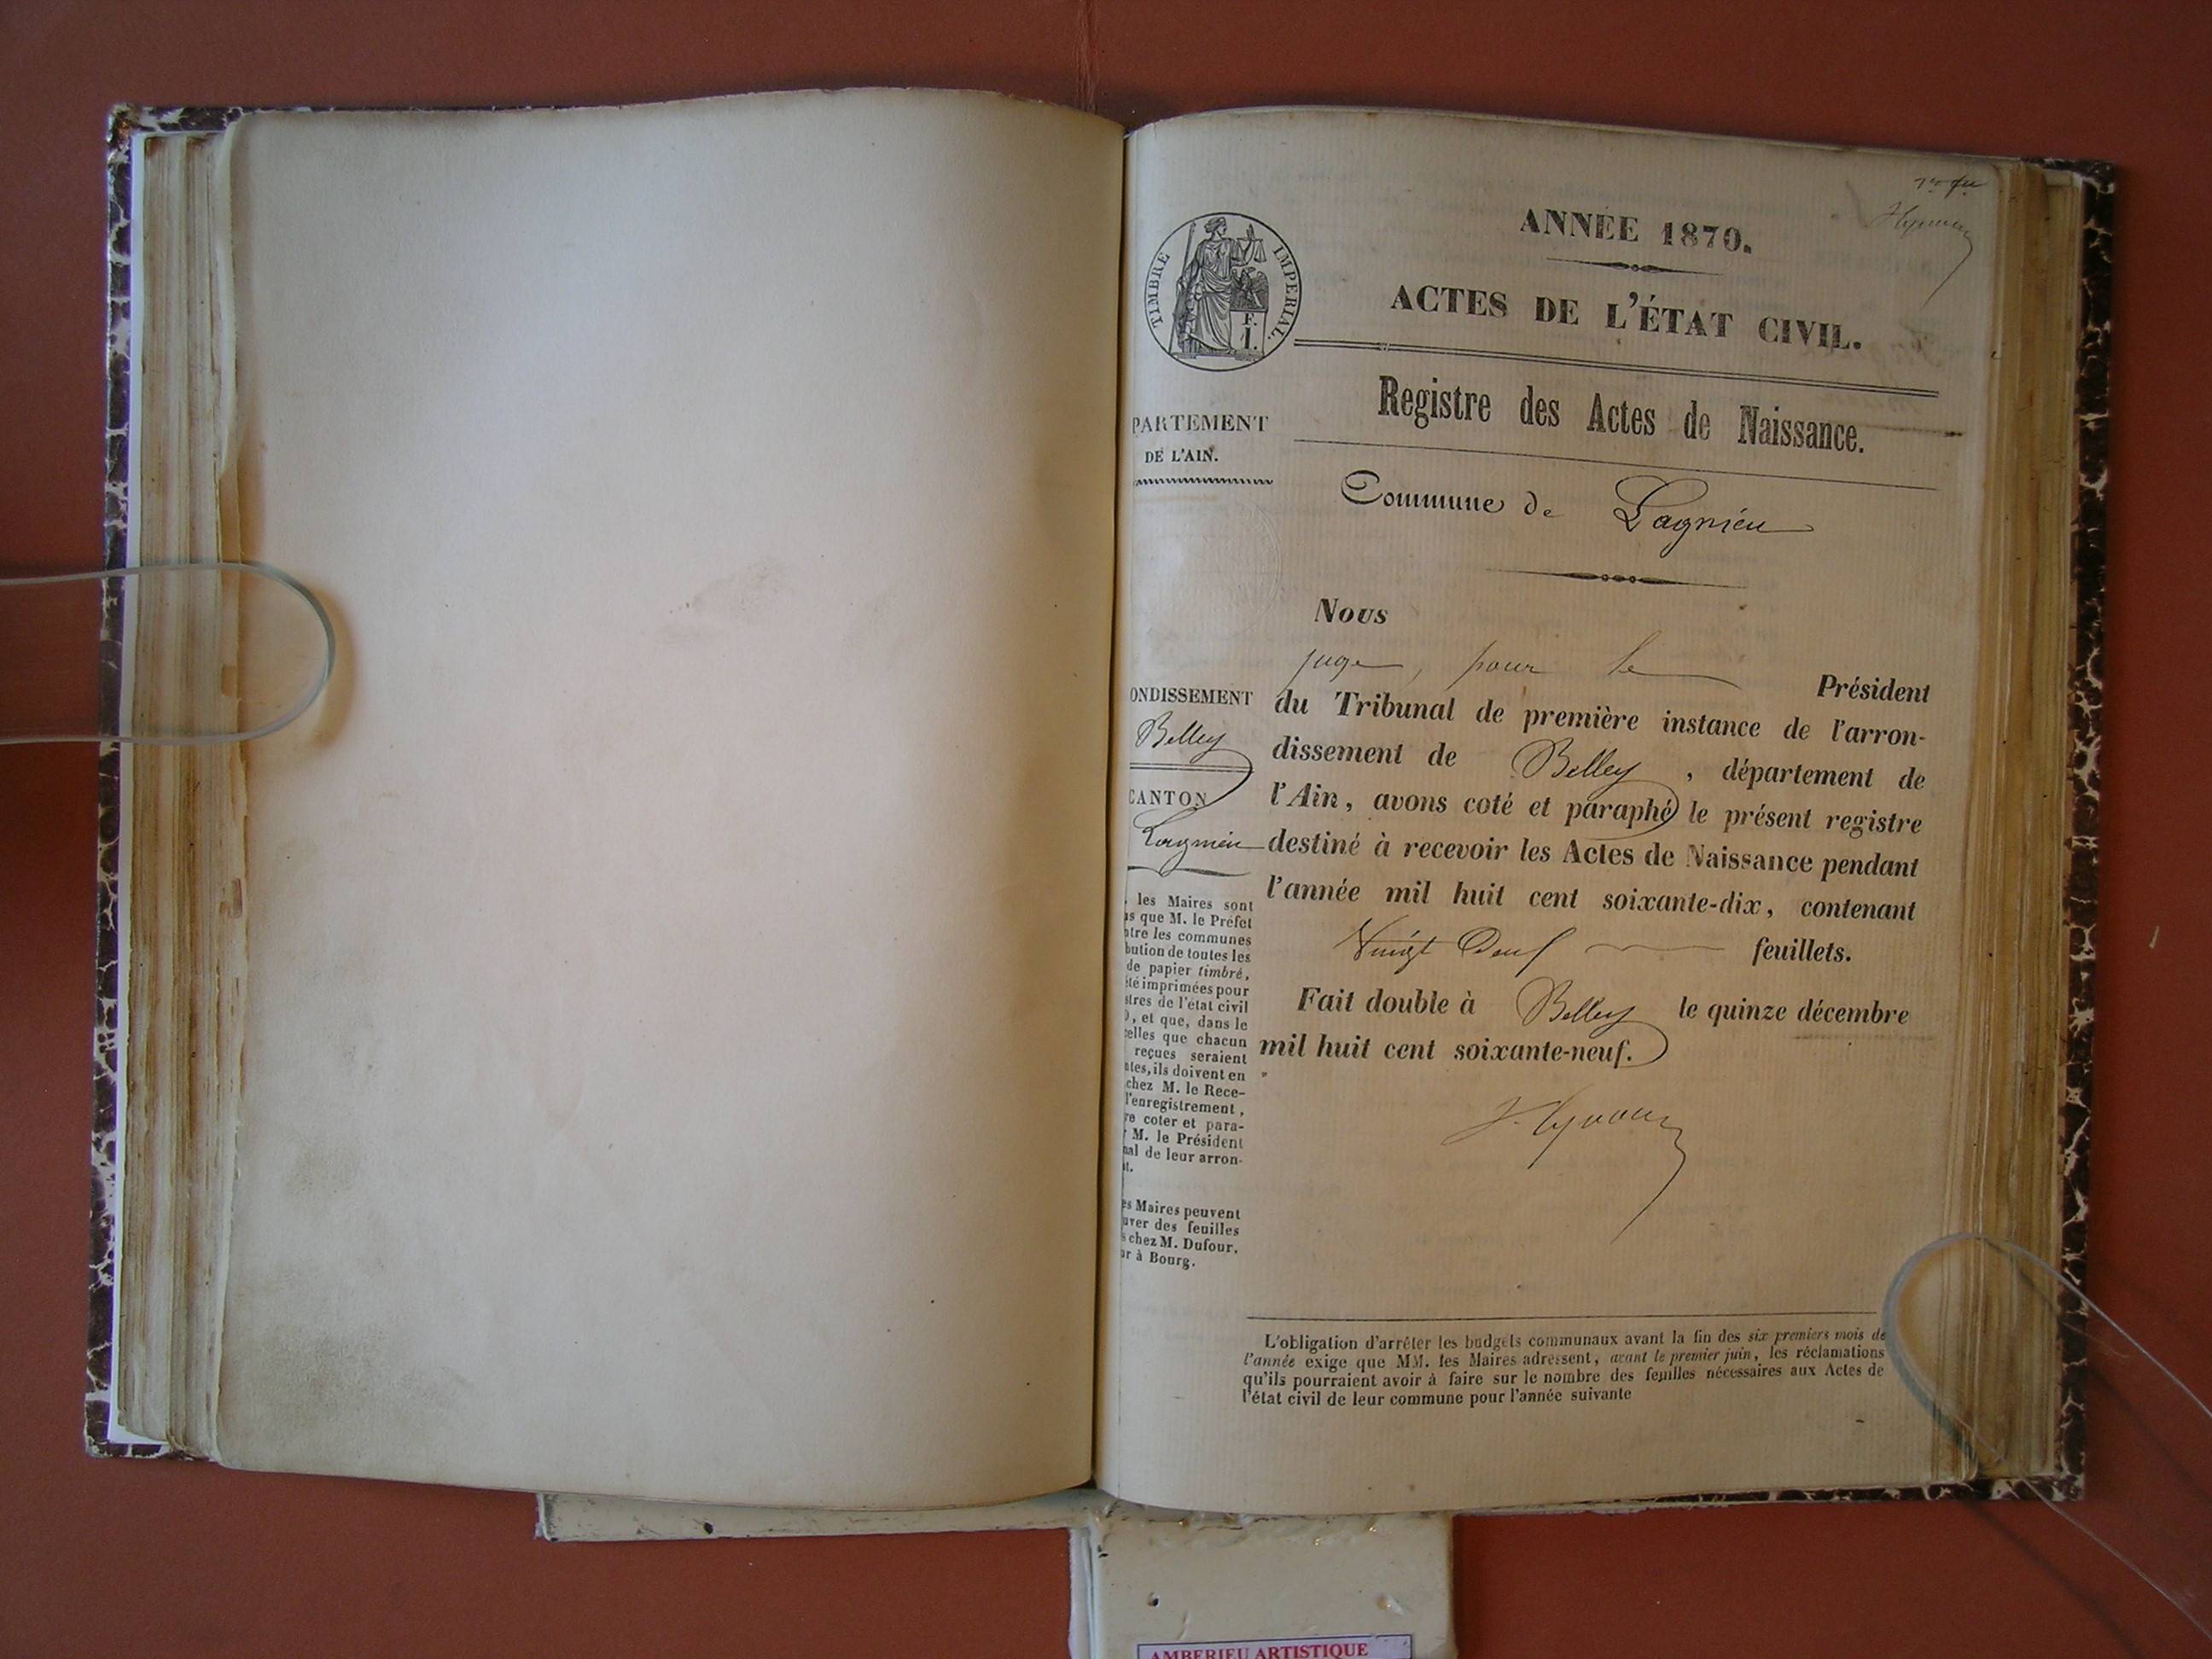 1er fet
ANNÉE 1870.
TIMBRE IMPERIAL.
F.
I.
ACTES DE L'ÉTAT CIVIL.
Registre des Actes de Naissance.
PARTEMENT
DE L'AIN.
Commune de Lagnieu
Nous
juge, pour le Président
du Tribunal de première instance de l'arron-
dissement de Belley, département de
l'Ain, avons coté et paraphé le présent registre
destiné à recevoir les Actes de Naissance pendant
l'année mil huit cent soixante-dix, contenant
Vingt Deux feuillets.
Fait double à Belley le quinze décembre
mil huit cent soixante-neuf.
ONDISSEMENT
Belley
CANTON
Lagnieu
, les Maires sont
ns que M. le Préfet
ntre les communes
bution de toutes les
de papier timbré,
été imprimées pour
stres de l'état civil
0, et que, dans le
celles que chacun
reçues seraient
ntes, ils doivent en
chez M. le Rece-
l'enregistrement,
re coter et para-
r M. le Président
nal de leur arron-
nt.
es Maires peuvent
uver des feuilles
s chez M. Dufour,
ur à Bourg.
L'obligation d'arrêter les budgets communaux avant la fin des six premiers mois de
l'année exige que MM. les Maires adressent, avant le premier juin, les réclamations
qu'ils pourraient avoir à faire sur le nombre des feuilles nécessaires aux Actes de
l'état civil de leur commune pour l'année suivante
AMBERIEU ARTISTIQUE